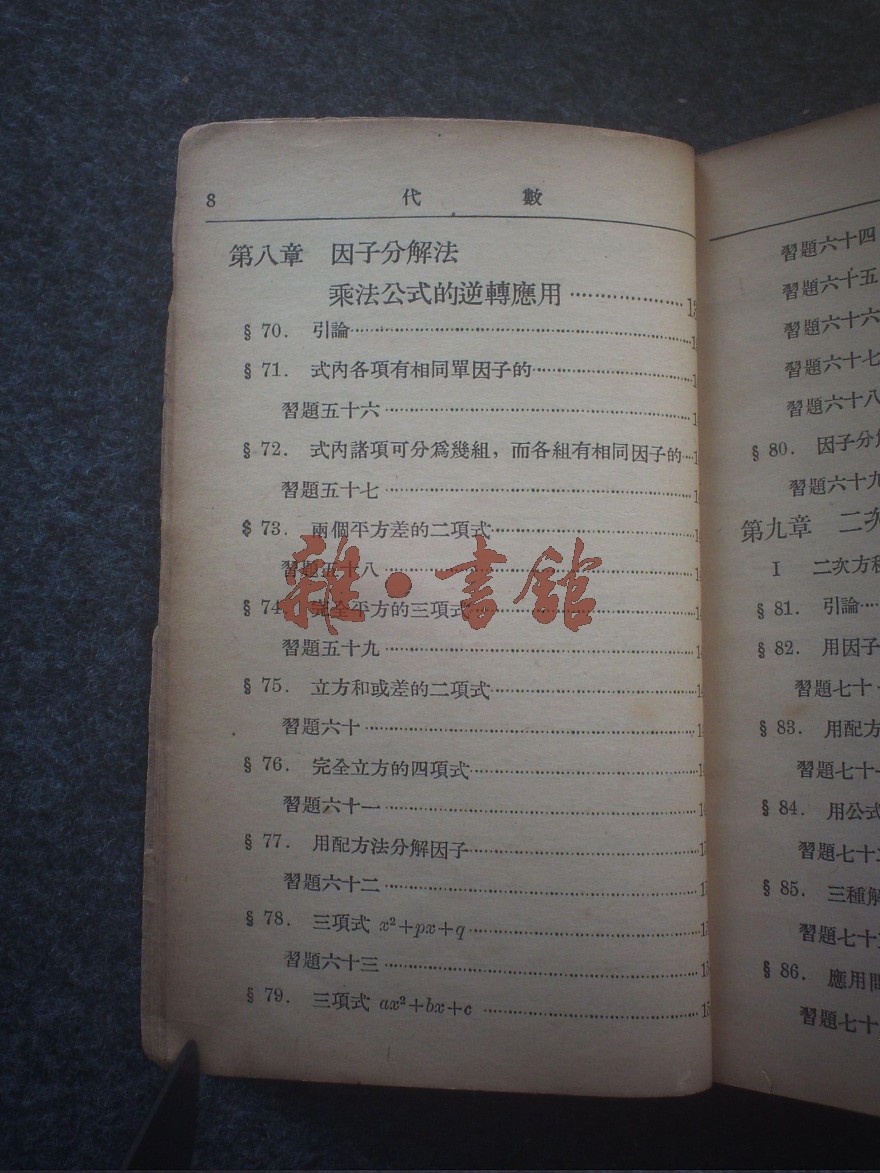 8 代 數
第八章 因子分解法
乘法公式的逆轉應用
§ 70. 引論
§ 71. 式內各項有相同單因子的
習題五十六
§ 72. 式內諸項可分爲幾組，而各組有相同因子的
習題五十七
$ 73. 兩個平方差的二項式
習題五十八
§ 74. 完全平方的三項式
習題五十九
§ 75. 立方和或差的二項式
習題六十
§ 76. 完全立方的四項式
習題六十一
§ 77. 用配方法分解因子
習題六十二
§ 78. 三項式 x²+px+q
習題六十三
§ 79. 三項式 ax²+bx+c
雜·書館
習題六十四
習題六十五
習題六十六
習題六十七
習題六十八
§ 80. 因子分
習題六十九
第九章 二次
I 二次方程
§ 81. 引論
§ 82. 用因子
習題七十
§ 83. 用配方
習題七十
§ 84. 用公式
習題七十二
§ 85. 三種解
習題七十
§ 86. 應用問
習題七十